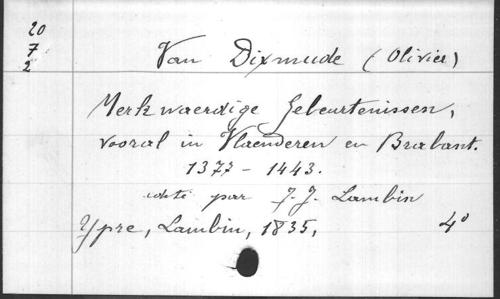 20
7
2
Van Dixmude (Olivier)
Merkwaerdige Gebeurtenissen,
vooral in Vlaenderen en Brabant.
1377 - 1443.
par J. J. Lambin
Ypre, Lambin, 1835, 4°